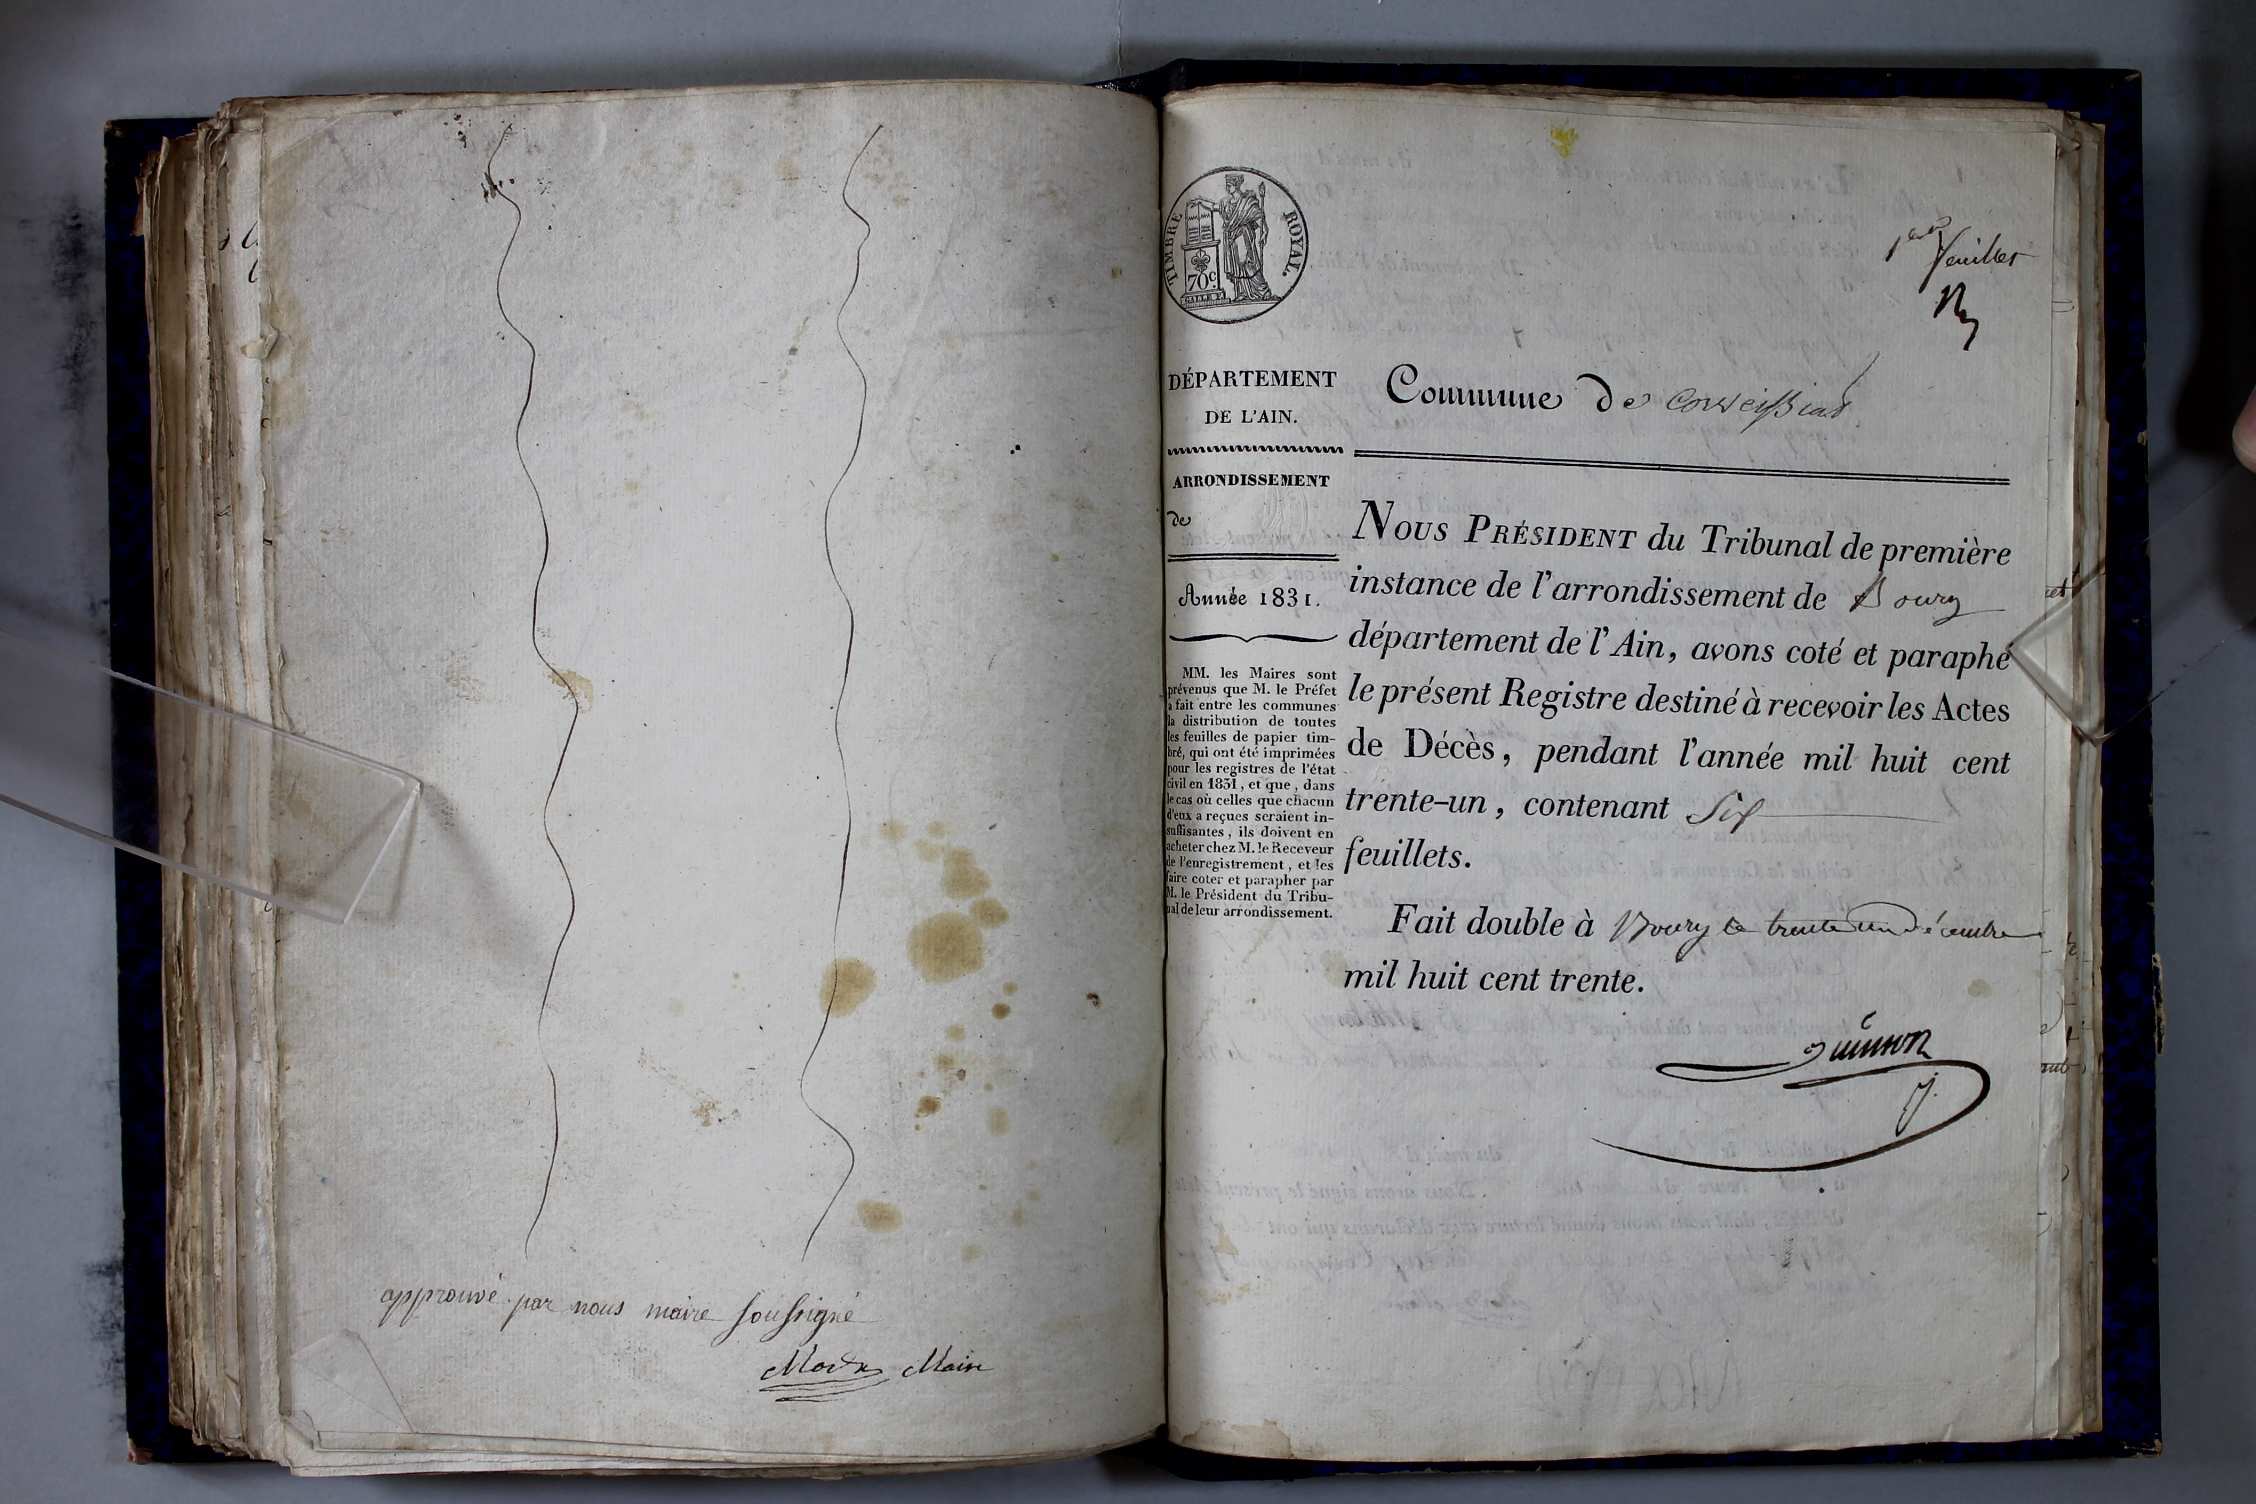 approuvé par nous maire soussigné
Maire
TIMBRE ROYAL.
70c
1er feuillet
DÉPARTEMENT
DE L'AIN.
Commune de Corveissiat
ARRONDISSEMENT
de
Année 1831.
MM. les Maires sont
prévenus que M. le Préfet
a fait entre les communes
la distribution de toutes
les feuilles de papier tim-
bré, qui ont été imprimées
pour les registres de l'état
civil en 1831, et que, dans
le cas où celles que chacun
d'eux a reçues seraient in-
suffisantes, ils doivent en
acheter chez M. le Receveur
de l'enregistrement, et les
faire coter et parapher par
M. le Président du Tribu-
nal de leur arrondissement.
NOUS PRÉSIDENT du Tribunal de première
instance de l'arrondissement de Bourg
département de l'Ain, avons coté et paraphé
le présent Registre destiné à recevoir les Actes
de Décès, pendant l'année mil huit cent
trente-un, contenant Six
feuillets.
Fait double à Bourg le trente un décembre
mil huit cent trente.